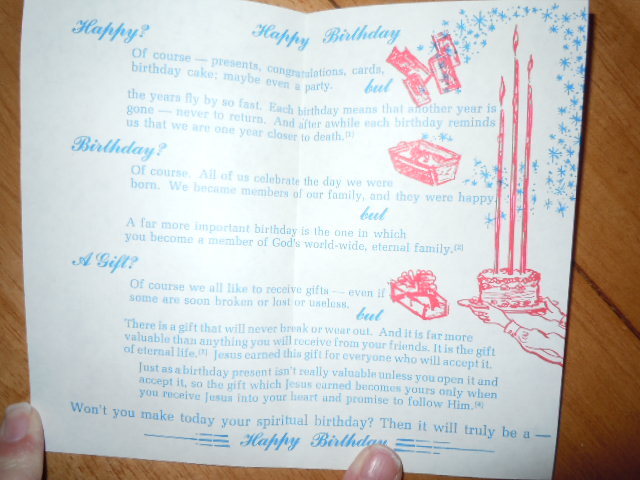 Happy?
Happy Birthday
Of course — presents, congratulations, cards,
birthday cake; maybe even a party.
but
the years fly by so fast. Each birthday means that another year is
gone — never to return. And after awhile each birthday reminds
us that we are one year closer to death.[1]
Birthday?
Of course. All of us celebrate the day we were
born. We became members of our family, and they were happy,
but
A far more important birthday is the one in which
you become a member of God's world-wide, eternal family.[2]
A Gift?
Of course we all like to receive gifts — even if
some are soon broken or lost or useless.
but
There is a gift that will never break or wear out. And it is far more
valuable than anything you will receive from your friends. It is the gift
of eternal life.[3] Jesus earned this gift for everyone who will accept it.
Just as a birthday present isn't really valuable unless you open it and
accept it, so the gift which Jesus earned becomes yours only when
you receive Jesus into your heart and promise to follow Him.[4]
Won't you make today your spiritual birthday? Then it will truly be a —
Happy Birthday